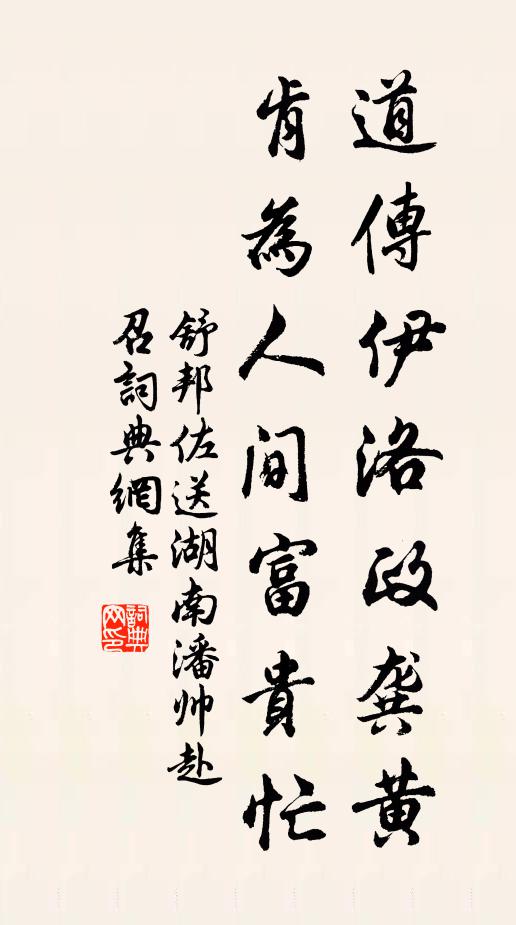 道傳伊洛政龔黃
肯為人間富貴忙
舒邦佐送湖南潘帅赴
召詞典網集
詞典网印